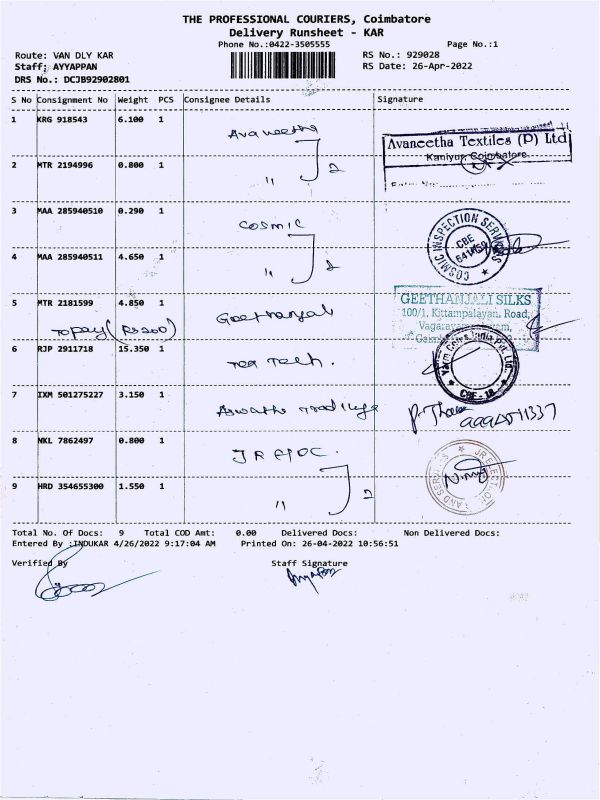 THE PROFESSIONAL COURIERS, Coimbatore
Delivery Runsheet - KAR
Phone No.:0422-3505555
Page No.:1
Route: VAN DLY KAR
RS No.: 929028
Staff: AYYAPPAN
RS Date: 26-Apr-2022
DRS No.: DCJB92902801
S No Consignment No Weight PCS Consignee Details Signature
1 KRG 918543 6.100 1 Avaneetha
Avaneetha Textiles (P) Ltd
Kaniyur, Coimbatore.
2 MTR 2194996 0.800 1 " 2
3 MAA 285940510 0.290 1 Cosmic
COSMIC INSPECTION SERVICES
CBE
4 MAA 285940511 4.650 1 " 2
5 MTR 2181599 4.850 1 Geethanjali
GEETHANJALI SILKS
100/1, Kittampalayam, Road,
Topay (Rs200)
6 RJP 2911718 15.350 1 Tech.
India Pvt. Ltd.
CBE - 18
7 IXM 501275227 3.150 1 Aswatha
8 NKL 7862497 0.800 1 JR
9 HRD 354655300 1.550 1 " 2
Total No. Of Docs: 9 Total COD Amt: 0.00 Delivered Docs: Non Delivered Docs:
Entered By :INDUKAR 4/26/2022 9:17:04 AM Printed On: 26-04-2022 10:56:51
Verified By Staff Signature